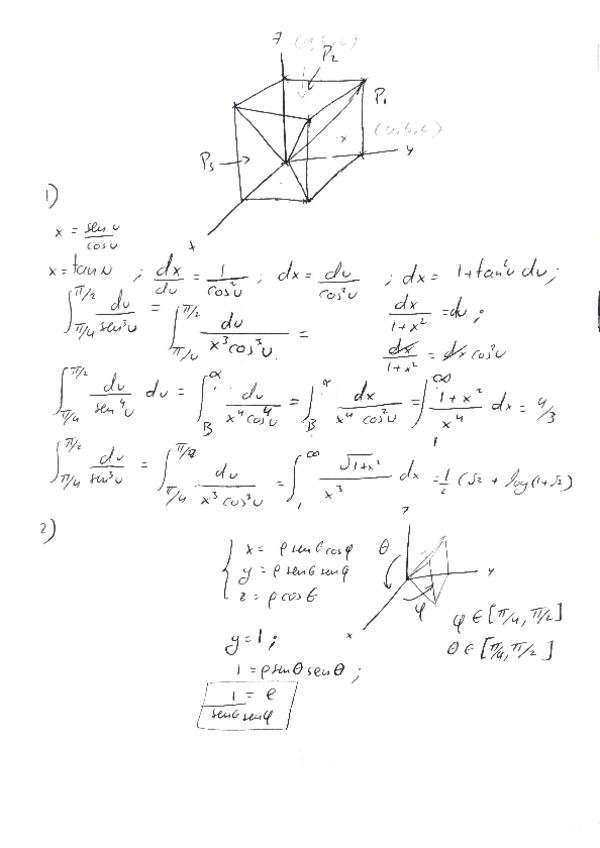 z (a,b,c)
P₂
P₁
(a,b,c)
P₃
y
x
1)
x = sen u / cos u
x = tan u ; dx/du = 1/cos²u ; dx = du/cos²u ; dx = 1+tan²u du ;
∫_{π/4}^{π/2} du/sen³u = ∫_{π/4}^{π/2} du/(x³cos³u) = dx/(1+x²) = du ;
dx/(1+x²) = dx cos²u
∫_{π/4}^{π/2} du/sen⁴u du = ∫_B^α du/(x⁴cos⁴u) = ∫_B^α dx/(x⁴cos²u) = ∫_1^∞ (1+x²)/x⁴ dx = 4/3
∫_{π/4}^{π/2} du/sen³u = ∫_{π/4}^{π/2} du/(x³cos³u) = ∫_1^∞ √(1+x²)/x³ dx = 1/2 (√2 + log(1+√2))
2)
x = ρ senθ cosφ
y = ρ senθ senφ
z = ρ cosθ
z
θ
y
φ
x
φ ∈ [π/4, π/2]
θ ∈ [π/4, π/2]
y = 1 ;
1 = ρ senθ senθ ;
1/(senθ senφ) = ρ